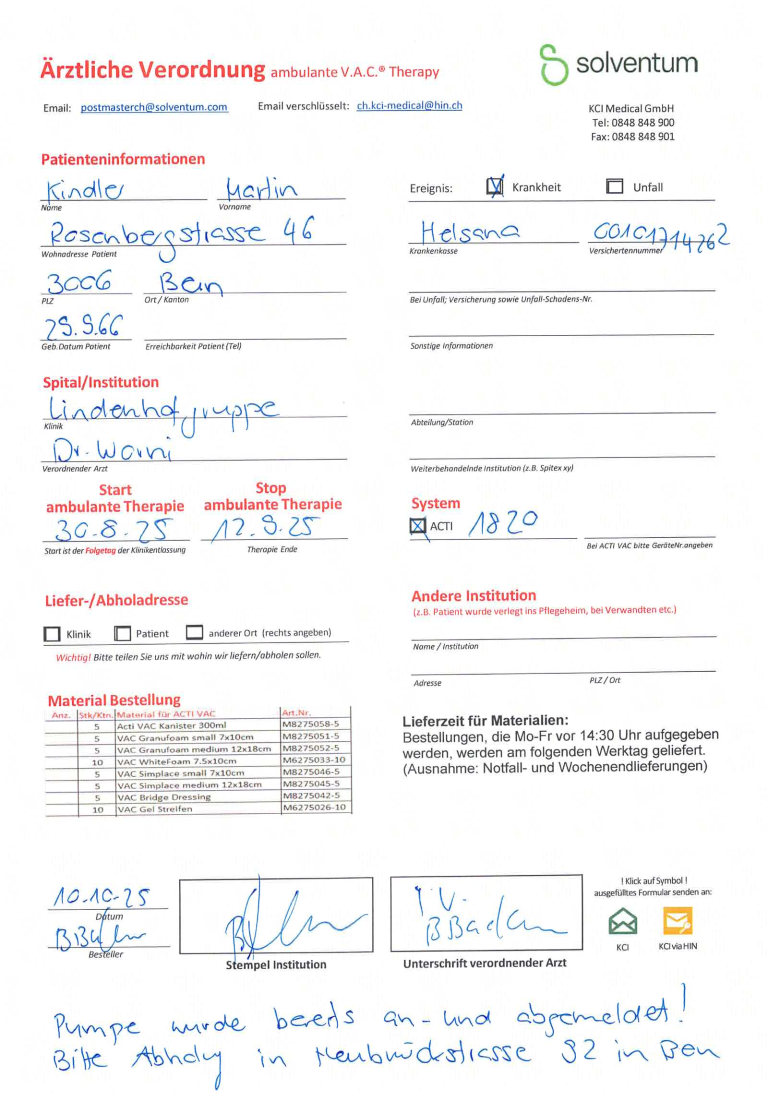 Ärztliche Verordnung ambulante V.A.C.® Therapy
solventum
Email: postmasterch@solventum.com Email verschlüsselt: ch.kci-medical@hin.ch
KCI Medical GmbH
Tel: 0848 848 900
Fax: 0848 848 901
Patienteninformationen
Kindler Martin
Name Vorname
Ereignis: Krankheit Unfall
Rosenbergstrasse 46
Wohnadresse Patient
Helsana 00101714762
Krankenkasse Versichertennummer
3006 Bern
PLZ Ort / Kanton
Bei Unfall; Versicherung sowie Unfall-Schadens-Nr.
29.9.66
Geb.Datum Patient Erreichbarkeit Patient (Tel)
Sonstige Informationen
Spital/Institution
Lindenhofgruppe
Klinik
Abteilung/Station
Dr. Warni
Verordnender Arzt
Weiterbehandelnde Institution (z.B. Spitex xy)
Start ambulante Therapie
Stop ambulante Therapie
30.8.25 12.9.25
Start ist der Folgetag der Klinikentlassung Therapie Ende
System
ACTI 1820
Bei ACTI VAC bitte GeräteNr.angeben
Liefer-/Abholadresse
Klinik Patient anderer Ort (rechts angeben)
Wichtig! Bitte teilen Sie uns mit wohin wir liefern/abholen sollen.
Andere Institution
(z.B. Patient wurde verlegt ins Pflegeheim, bei Verwandten etc.)
Name / Institution
Adresse PLZ / Ort
Material Bestellung
Anz. Stk/Ktn. Material für ACTI VAC Art.Nr.
5 Acti VAC Kanister 300ml M8275058-5
5 VAC Granufoam small 7x10cm M8275051-5
5 VAC Granufoam medium 12x18cm M8275052-5
10 VAC WhiteFoam 7.5x10cm M6275033-10
5 VAC Simplace small 7x10cm M8275046-5
5 VAC Simplace medium 12x18cm M8275045-5
5 VAC Bridge Dressing M8275042-5
10 VAC Gel Streifen M6275026-10
Lieferzeit für Materialien:
Bestellungen, die Mo-Fr vor 14:30 Uhr aufgegeben
werden, werden am folgenden Werktag geliefert.
(Ausnahme: Notfall- und Wochenendlieferungen)
10.10.25
Datum
Besteller
Stempel Institution
i.V.
Unterschrift verordnender Arzt
! Klick auf Symbol !
ausgefülltes Formular senden an:
KCI KCI via HIN
Pumpe wurde bereits an- und abgemeldet!
Bitte Abholung in Neubrückstrasse 92 in Bern